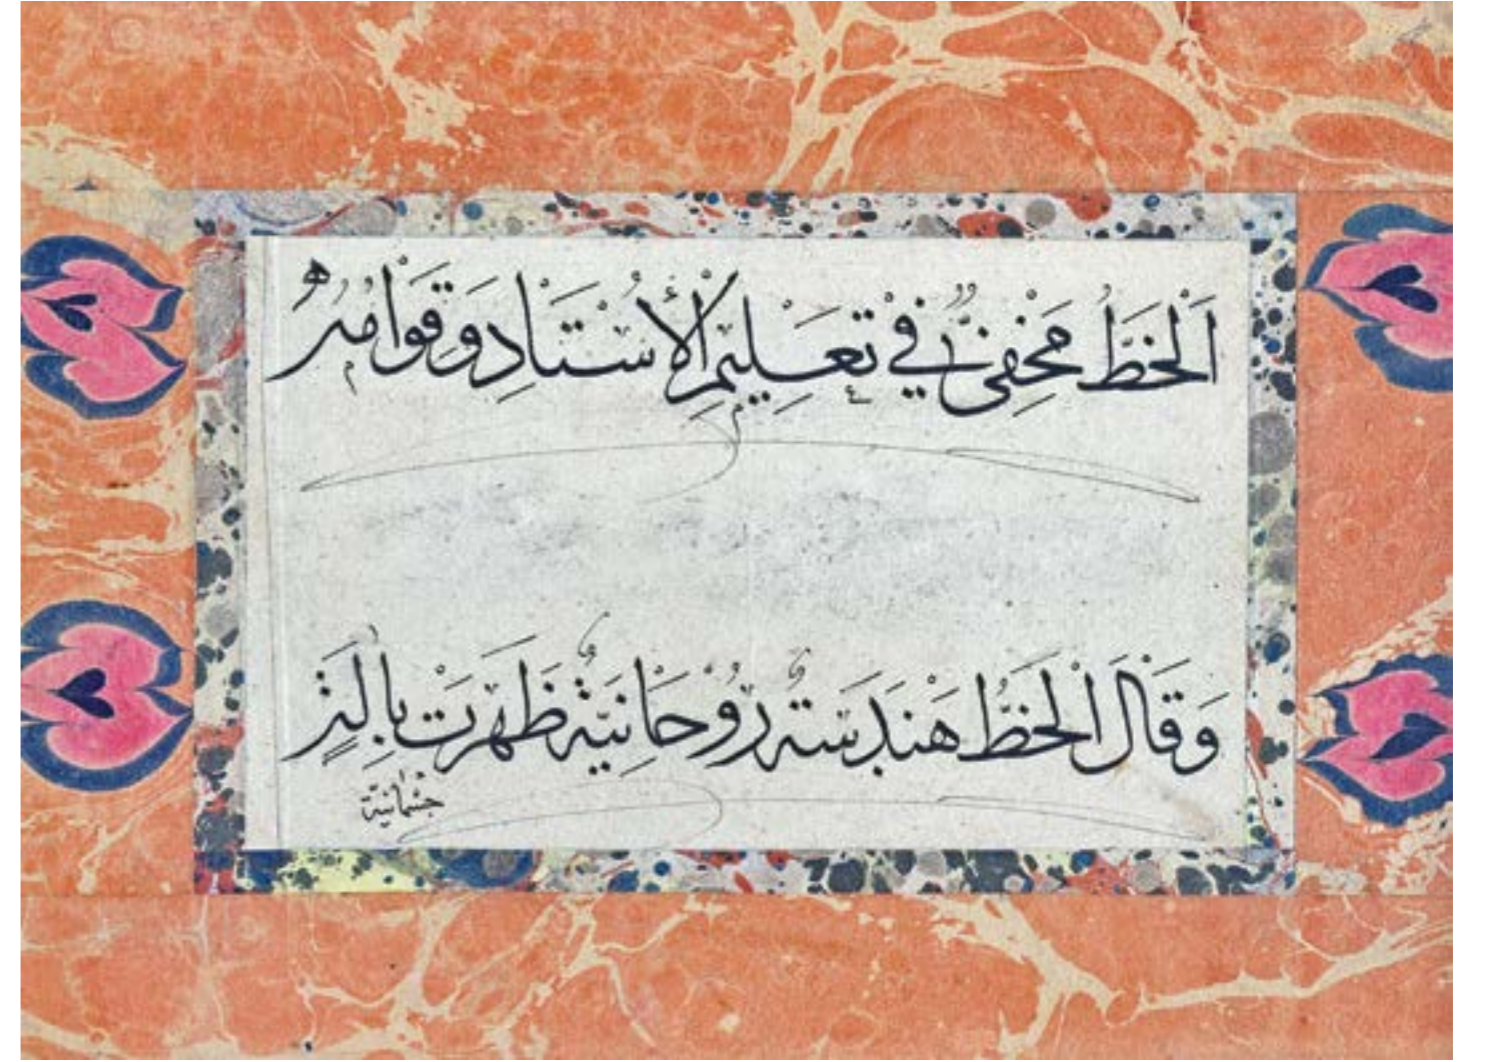 اَلْخَطُّ مَخْفِىٌّ فِي تَعْلِيْمِ الْأُسْتَاذِ وَقِوَامُهُ
وَقَالَ الْخَطُّ هَنْدَسَةٌ رُوْحَانِيَّةٌ ظَهَرَتْ بِاٰلَةٍ
جِسْمَانِيَّةٍ